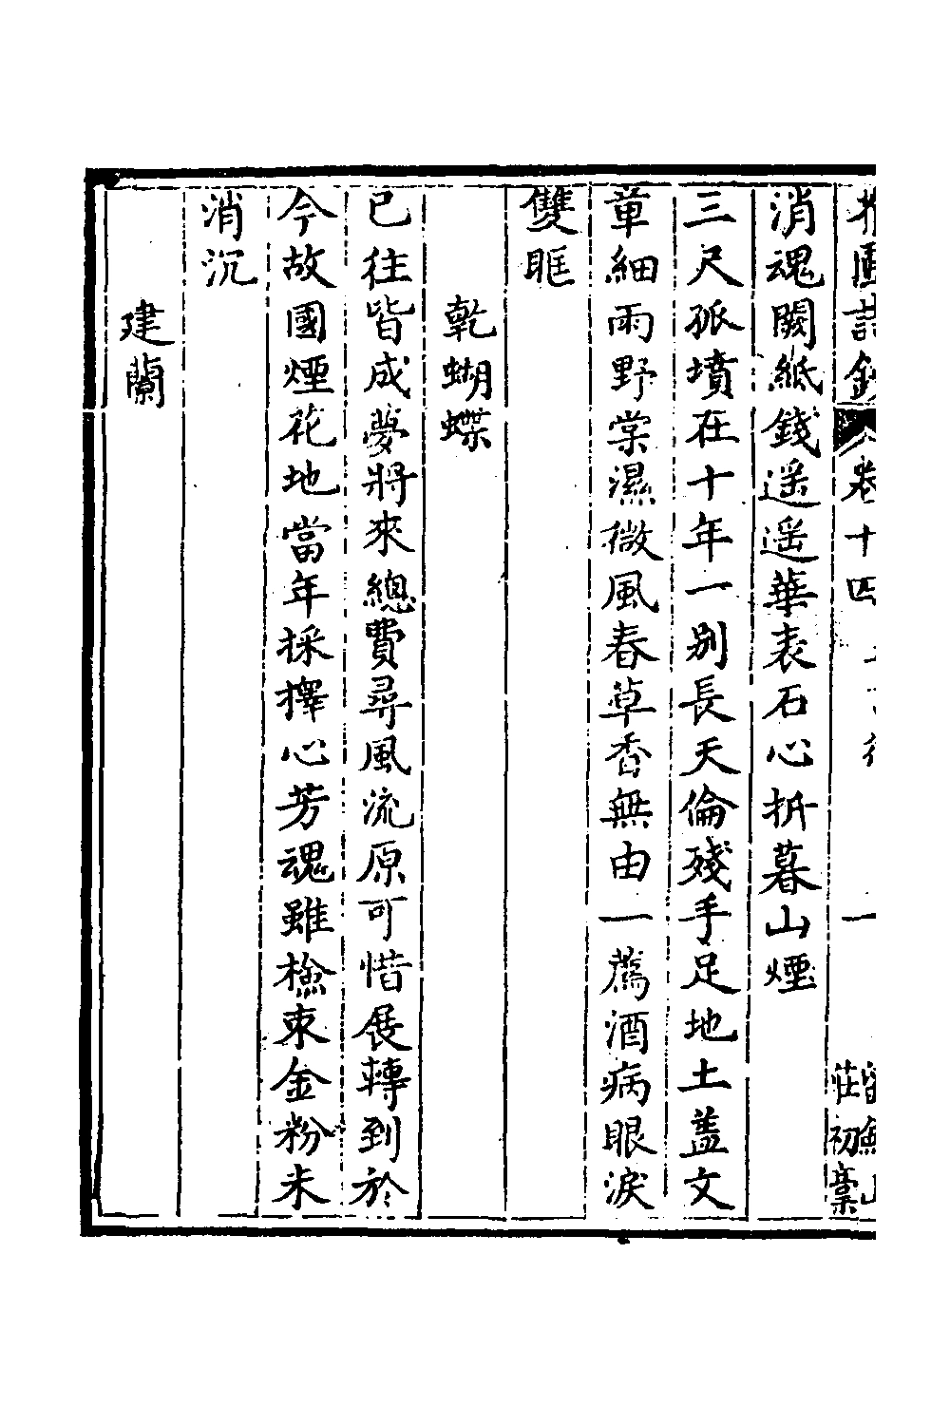 詩鈔 卷十四 一 莊初稾
消魂闕紙錢遥遥華表石心折暮山煙
三尺孤墳在十年一别長天倫殘手足地土盖文
章細雨野棠濕微風春草香無由一薦酒病眼淚
雙眶
乾蝴蝶
已往皆成夢將來總費尋風流原可惜展轉到於
今故國煙花地當年採擇心芳魂雖檢束金粉未
消沉
建蘭